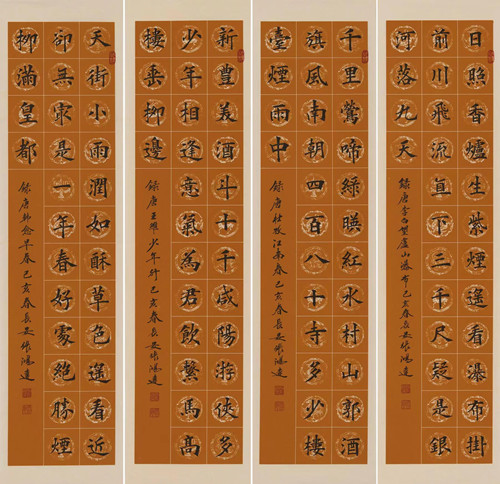 日照香爐生紫煙遙看瀑布掛
前川飛流直下三千尺疑是銀
河落九天
錄唐李白望廬山瀑布己亥春長安張鴻
千里鶯啼綠暎紅水村山郭酒
旗風南朝四百八十寺多少樓
臺煙雨中
錄唐杜牧江南春己亥春長安張鴻
新豐美酒斗十千咸陽游俠多
少年相逢意氣為君飲繫馬高
樓垂柳邊
錄唐王維少年行己亥春長安張鴻
天街小雨潤如酥草色遙看近
卻無㝡是一年春好處絕勝煙
柳滿皇都
錄唐韓愈早春己亥春長安張鴻